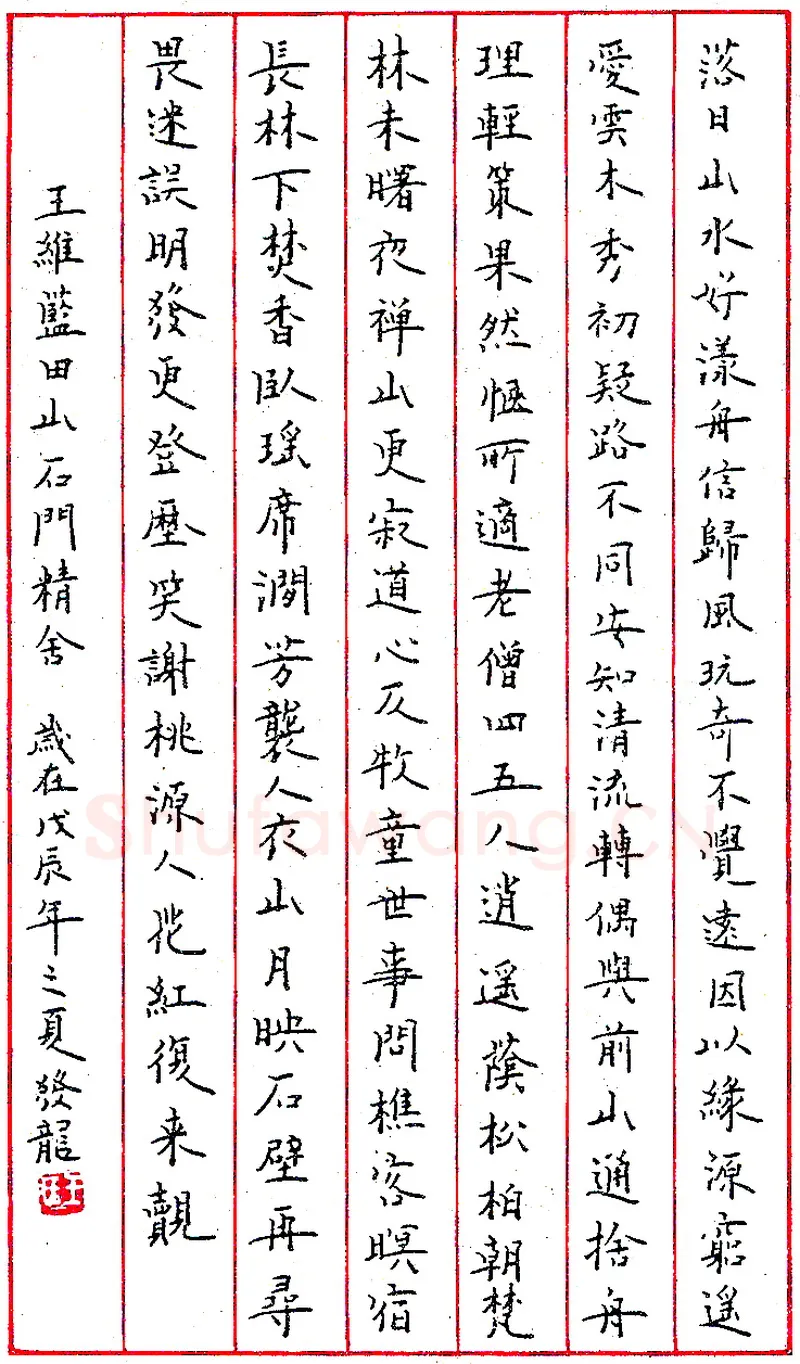 落日山水好漾舟信歸風玩奇不覺遠因以緣源窮遥
愛雲木秀初疑路不同安知清流轉偶與前山通捨舟
理輕策果然惬所適老僧四五人逍遥蔭松柏朝梵
林未曙夜禅山更寂道心及牧童世事問樵客暝宿
長林下焚香臥瑶席澗芳襲人衣山月映石壁再尋
畏迷誤明發更登歷笑謝桃源人花紅復来覿
王維藍田山石門精舍 歲在戊辰年之夏發龍
Shufawang.CN